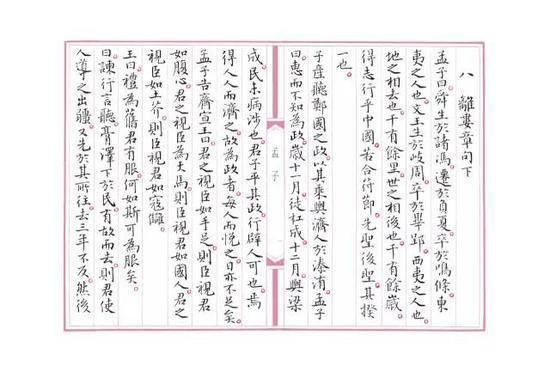 八 離婁章句下
孟子曰舜生於諸馮遷於負夏卒於鳴條東
夷之人也文王生於岐周卒於畢郢西夷之人也
地之相去也千有餘里世之相後也千有餘歲
得志行乎中國若合符節先聖後聖其揆
一也
子產聽鄭國之政以其乘輿濟人於溱洧孟子
曰惠而不知為政歲十一月徒杠成十二月輿梁
孟子
一
成民未病涉也君子平其政行辟人可也焉
得人人而濟之故為政者每人而悅之日亦不足矣
孟子告齊宣王曰君之視臣如手足則臣視君
如腹心君之視臣如犬馬則臣視君如國人君之
視臣如土芥則臣視君如寇讎
王曰禮為舊君有服何如斯可為服矣
曰諫行言聽膏澤下於民有故而去則君使
人導之出疆又先於其所往去三年不反然後